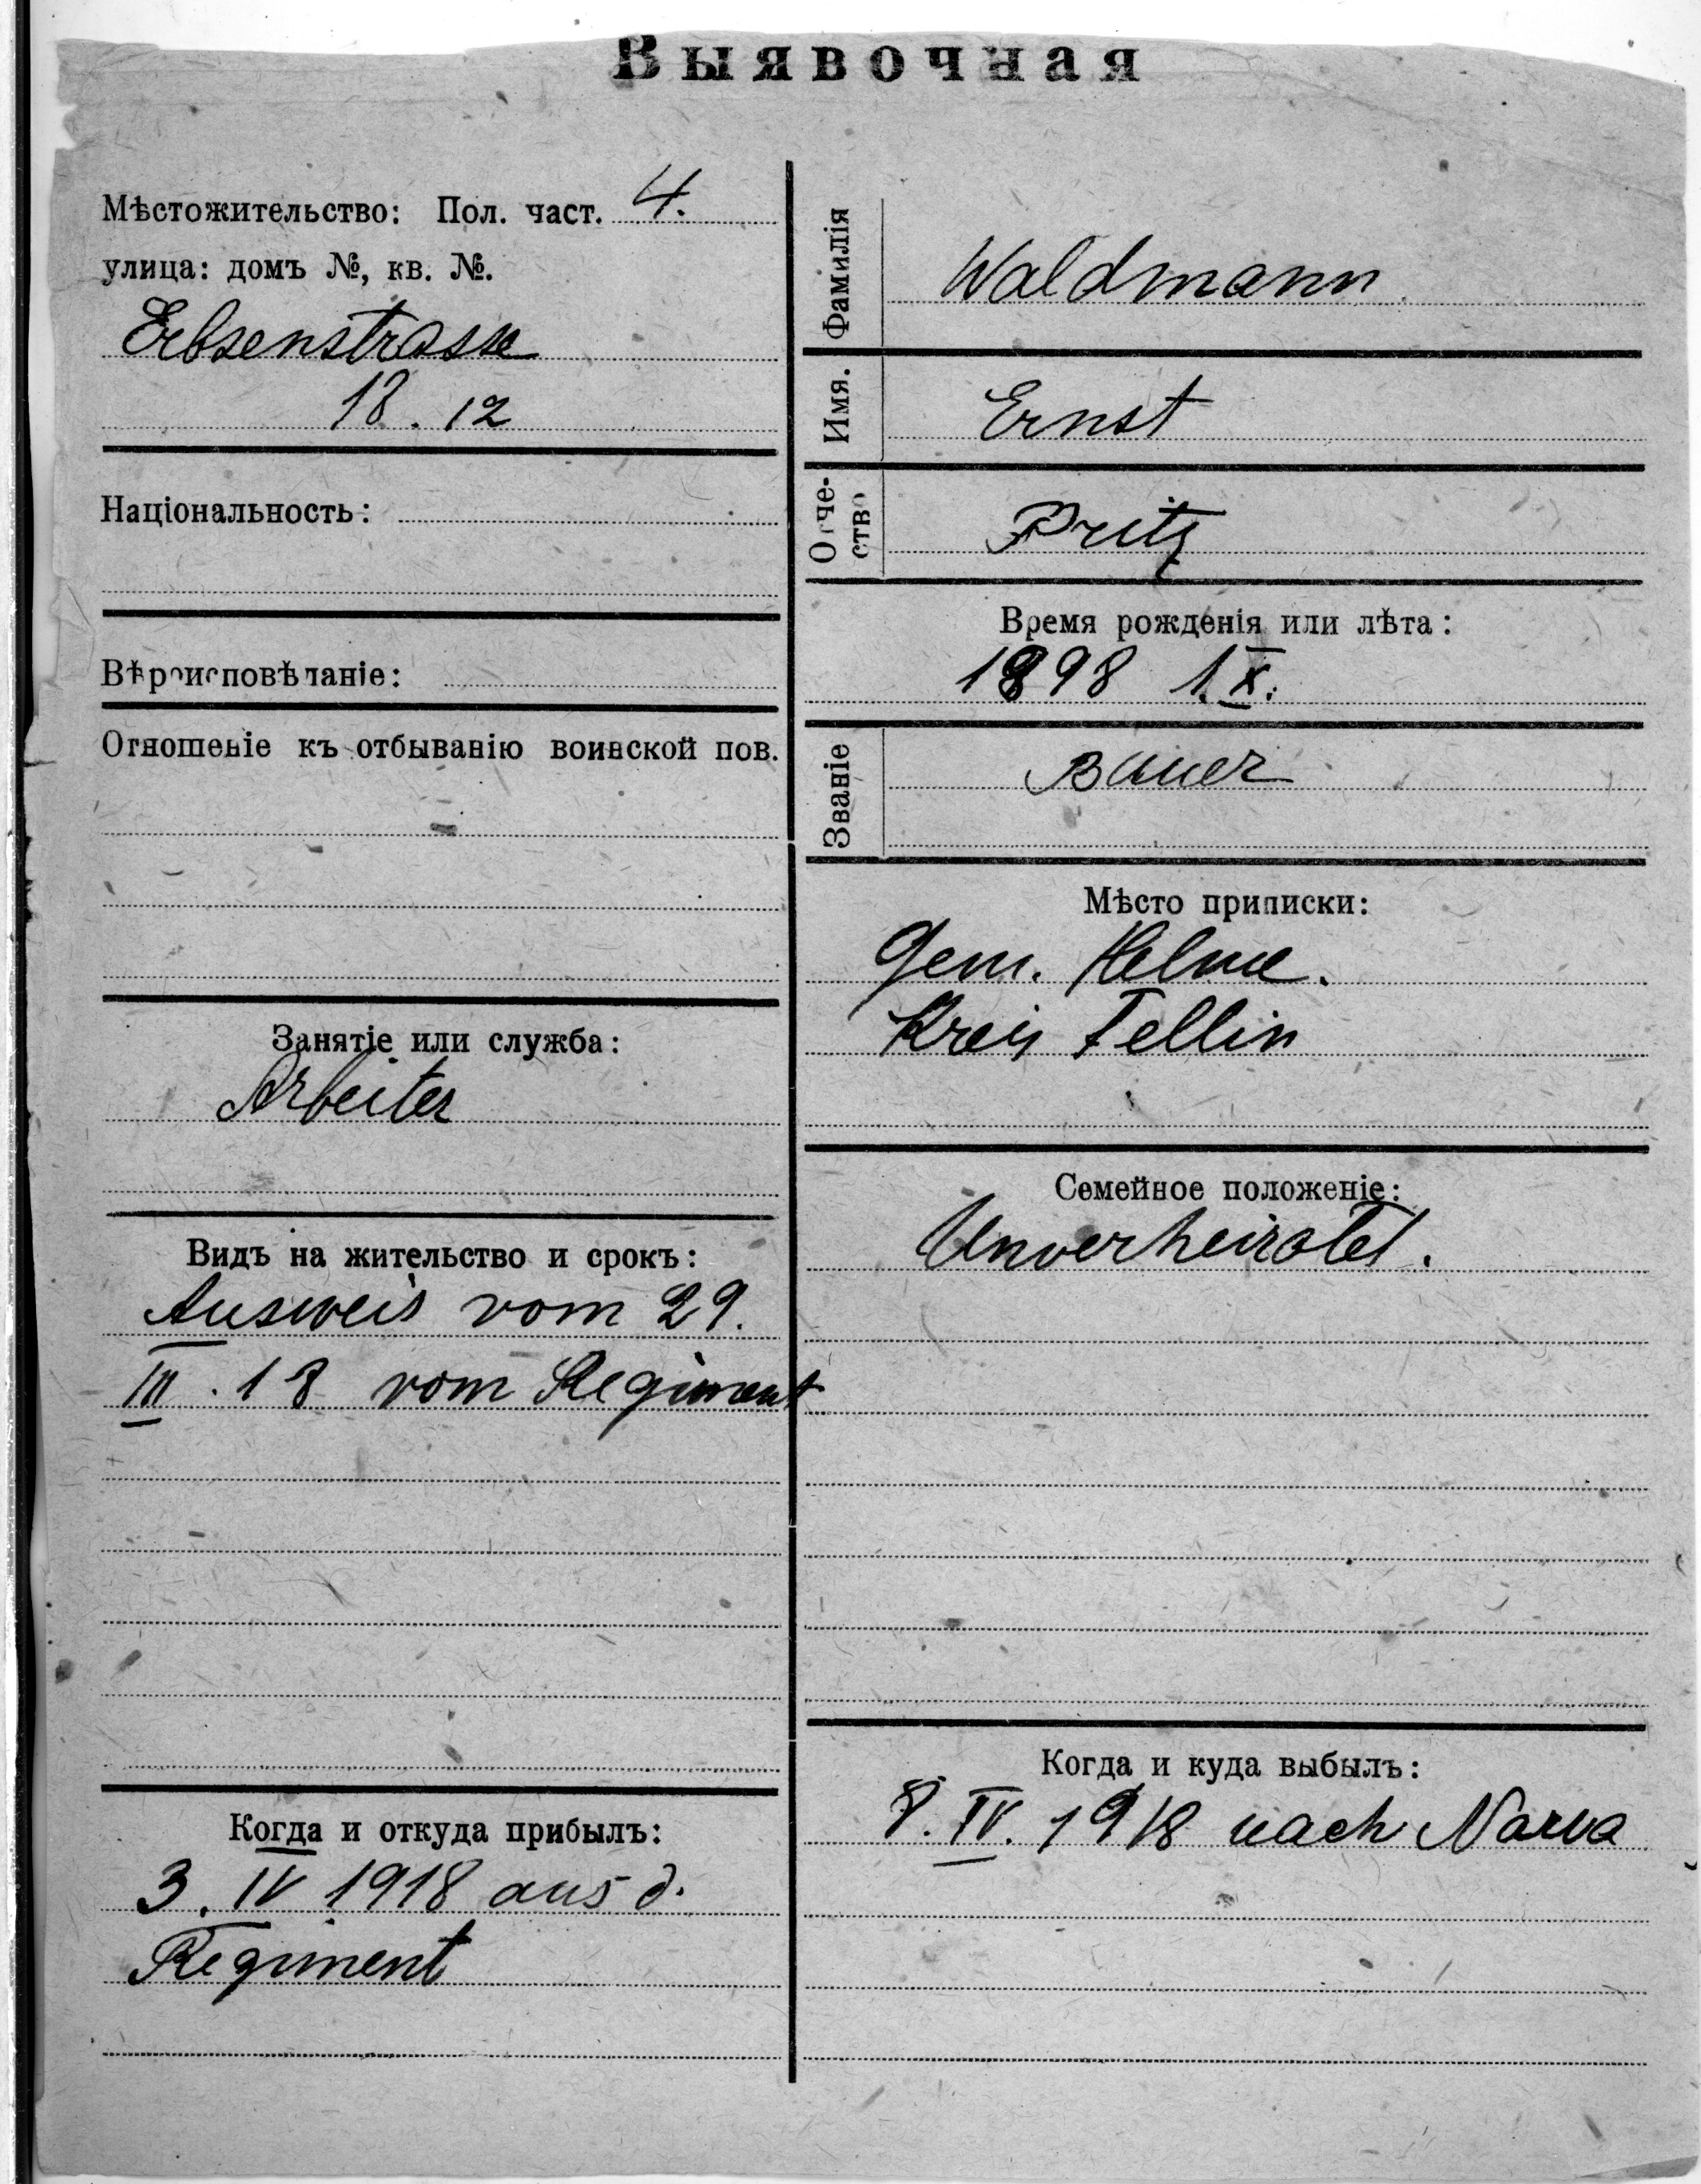 Выявочная
Мѣстожительство: Пол. част. 4.
улица: домъ №, кв. №.
Erbsenstrasse
18. 12
Національность:
Вѣроисповѣданіе:
Отношеніе къ отбыванію воинской пов.
Занятіе или служба:
Arbeiter
Видъ на жительство и срокъ:
Ausweis vom 29.
III. 18 vom Regiment
Когда и откуда прибылъ:
3. IV 1918 aus d.
Regiment
Фамилія Waldmann
Имя. Ernst
Отче-
ство Fritz
Время рожденія или лѣта:
1898 1. X.
Званіе Bauer
Мѣсто приписки:
Gem. Helme.
Kreis Fellin
Семейное положеніе:
Unverheiratet.
Когда и куда выбылъ:
8. IV. 1918 nach Narva